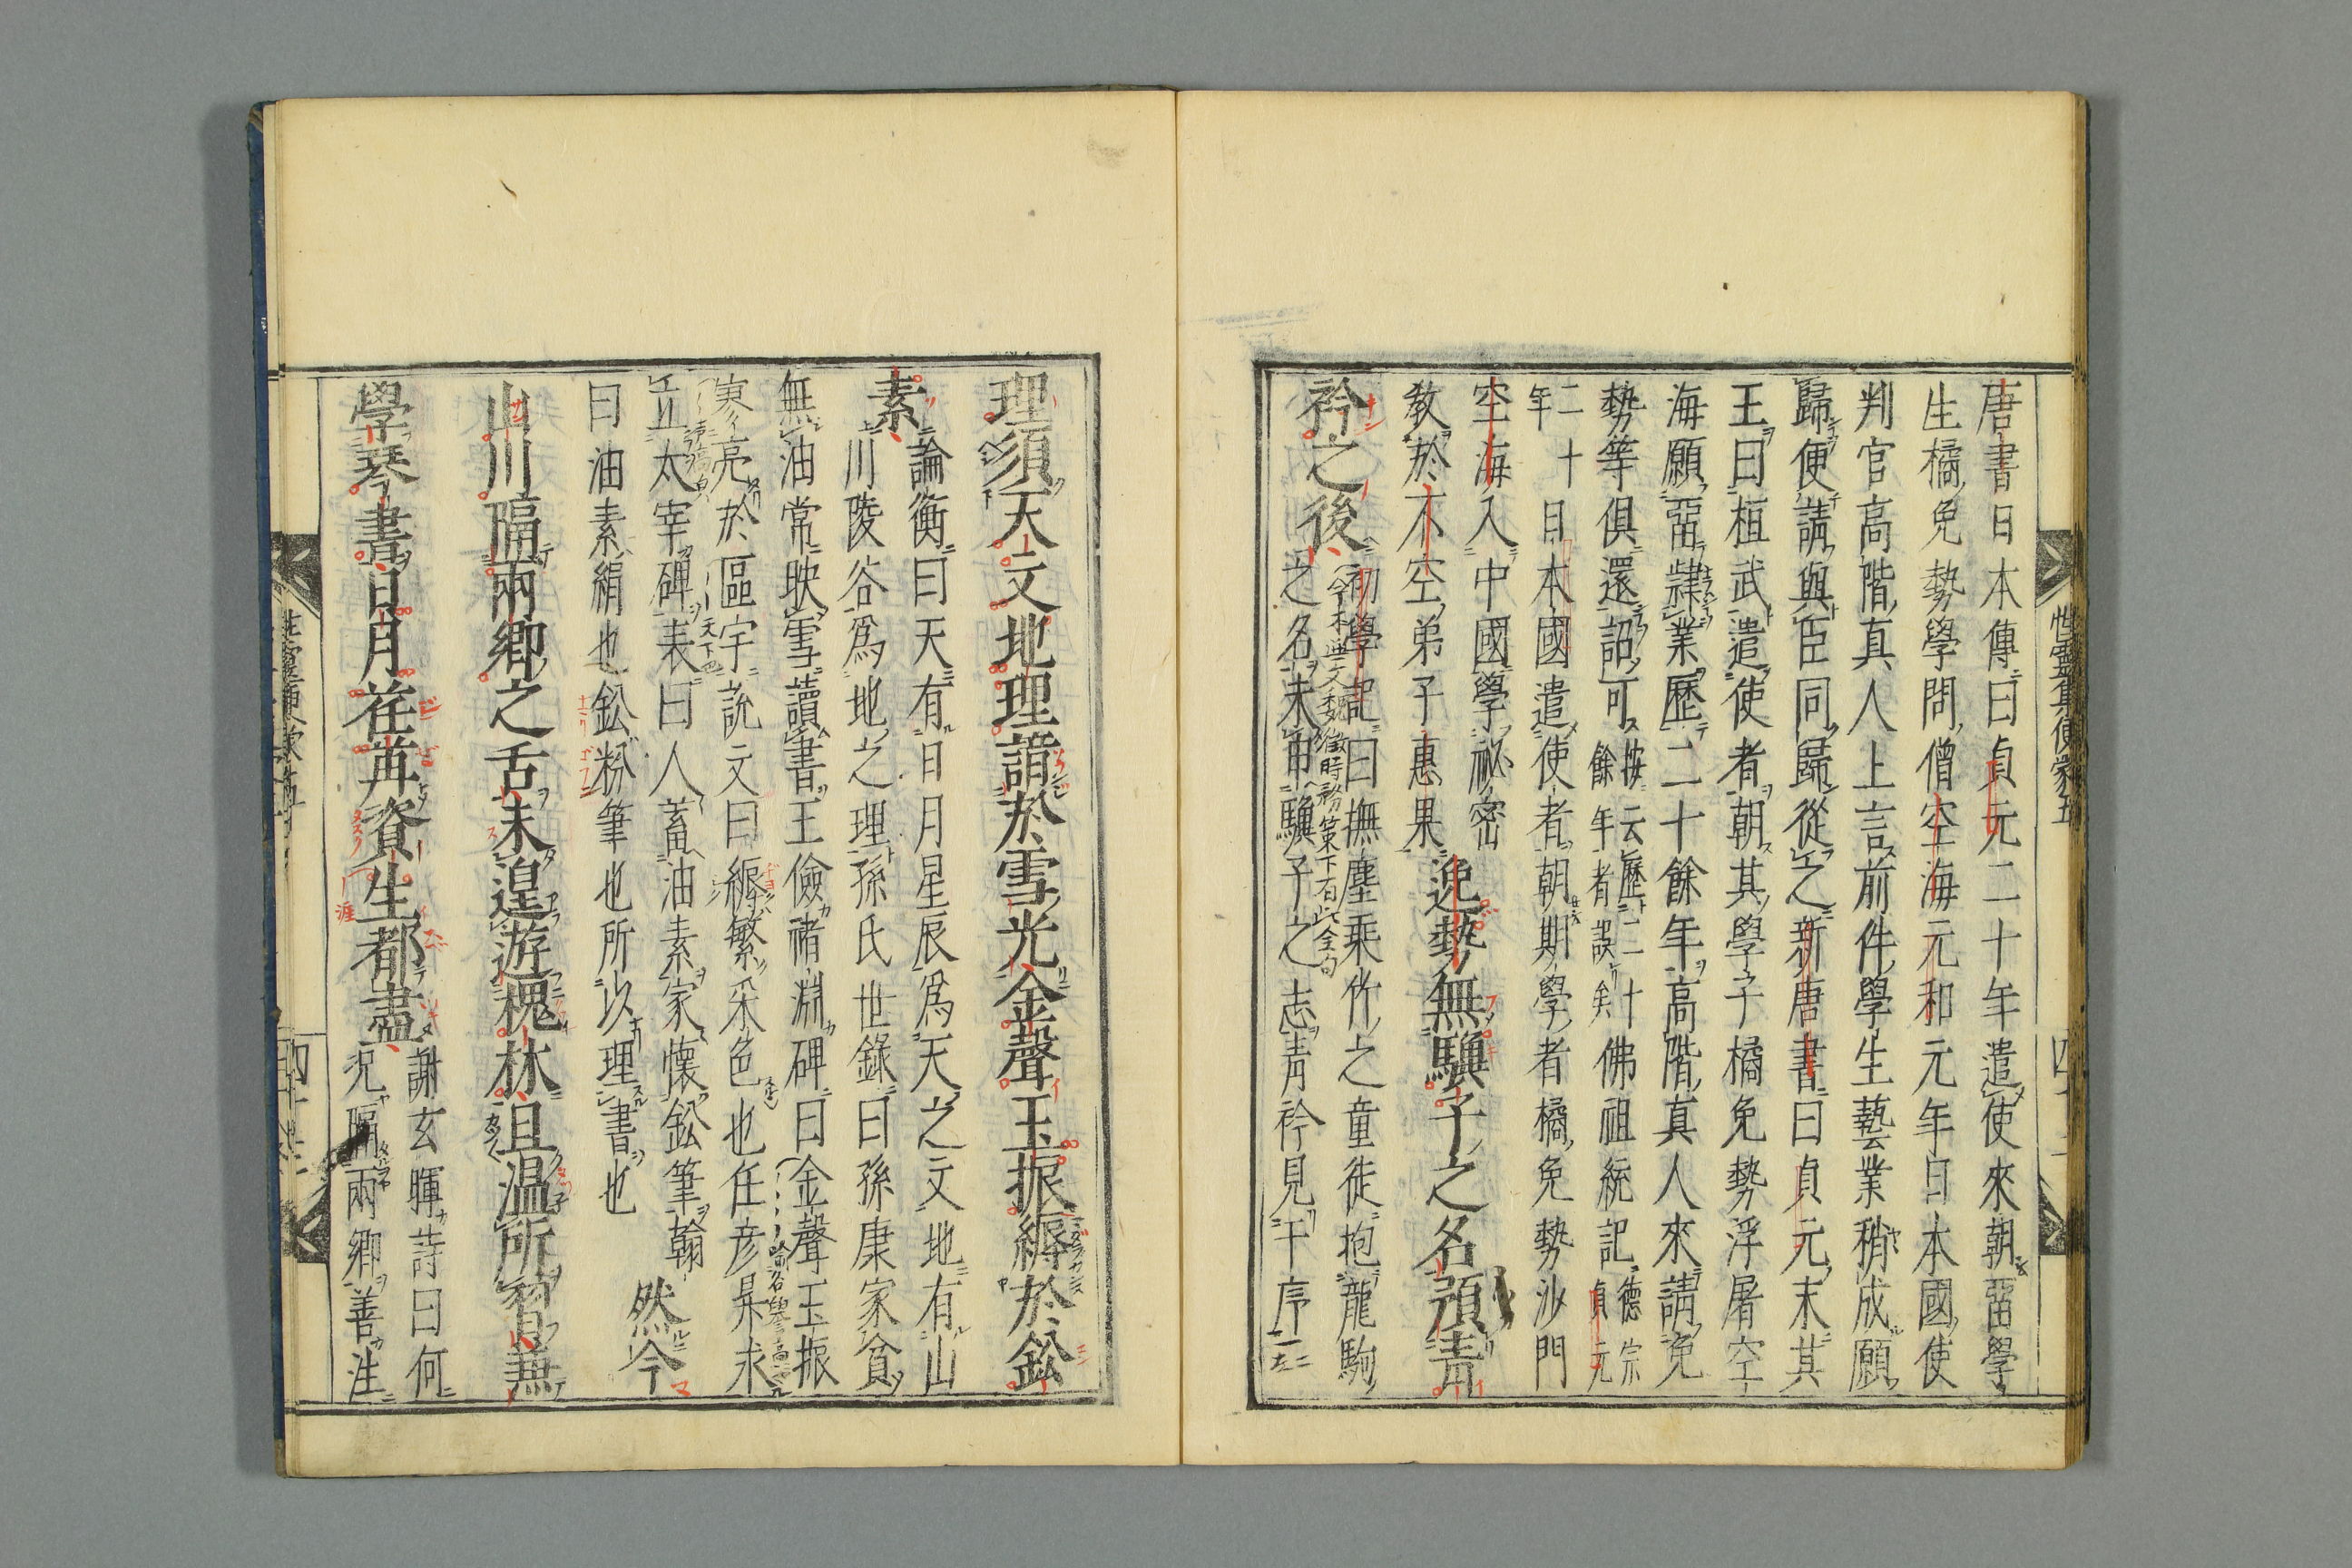 唐書日本傳曰貞元二十年遣使來朝留學
生橘免勢學問僧空海元和元年日本國使
判官高階真人上言前件學生藝業稍成願
歸便請與臣同歸從之新唐書曰貞元末其
王曰桓武遣使者朝其學子橘免勢浮屠空
海願留肄業歷二十餘年高階真人來請免
勢等俱還詔可按云歷二十餘年者誤矣佛祖統記德宗貞元
二十年日本國遣使者朝期學者橘免勢沙門
空海入中國學祕密
教於不空弟子惠果逸勢無驥子之名預青
衿之後初學記曰撫塵乘竹之童徒抱龍駒
之名未申驥子之志青衿見于序
今本無文魏徵時務策下有此全句
性靈集便蒙五
理須天文地理諳於雪光金聲玉振縟於鈆
素論衡曰天有日月星辰爲天之文地有山
川陵谷爲地之理孫氏世錄曰孫康家貧
無油常映雪讀書王儉褚淵碑曰金聲玉振
寥亮於區宇說文曰縟繁采色也任彦昇求
立太宰碑表曰人蓄油素家懷鈆筆翰
曰油素絹也鈆粉筆也所以理書也
然今
山川隔兩鄉之舌未遑遊槐林且温所習兼
學琴書日月荏苒資生都盡謝玄暉詩曰何
况隔兩鄉善注